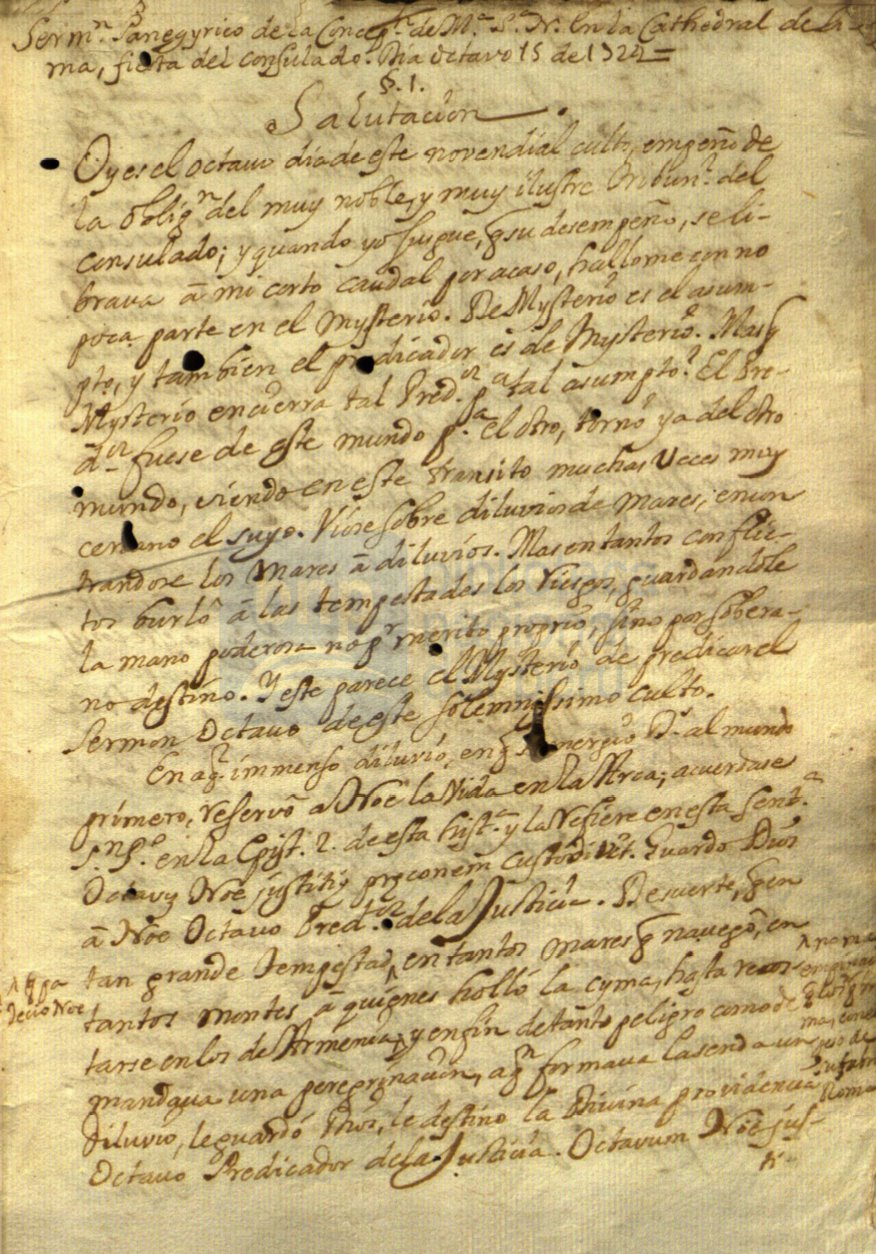 Serm.ⁿ Panegyrico de la Concep.ⁿ de M.ª S.ª N. En la Cathedral de Li-
ma, fiesta del consulado. Dia octavo 15 de 1724 =
§. 1.
Salutacion.
Oy es el octavo dia de este novendial culto, empeño de
la oblig.ⁿ del muy noble, y muy ilustre Tribun.l del
consulado; y quando yo juzgue, q su desempeño, se li-
brava â mi corto caudal por acaso, hallome con no
poca parte en el Mysterio. De Mysterio es el asum-
pto, y tambien el predicador es de Mysterio. Mas q
Mysterio encierra tal Pred.or p.a tal asumpto? El Pre-
d.or fuese de este mundo p.a el otro, tornó ya del otro
mundo, viendo en este transito muchas veces muy
cercano el suyo. Viose sobre diluvios de mares, encon
trandose los Mares â diluvios. Mas en tantos conflic-
tos burlô â las tempestades los riesgos, guardandole
la mano poderosa no p.r merito proprio, sino por sobera-
no destino. Y este parece el Mysterio de predicar el
Sermon Octavo de este solemnissimo culto.
En aq.l immenso diluvio, en q D.s al mundo
primero, reservô a Noê la Vida en la Arca; acuerdase
S.n P.o en la Epist. 2. de esta hist.a y la refiere en esta sent.a
Octavũ Noê justitię pręconem custodivit. Guardo Dios
â Noê Octavo Pred.or de la Justicia. De suerte, q en
tan grande tempestad, en tantos mares q navegô, en
tantos montes, â quienes holló la cyma, hasta recos-
tarse en los de Armenia; y en fin de tanto peligro como de
mandava una peregrinacion, a q.n formava la senda un
diluvio, le guardó Dios, le destino la Divina providencia
Octavo Predicador de la Justicia. Octavum Noê jus-
ti-
Noe
Roma